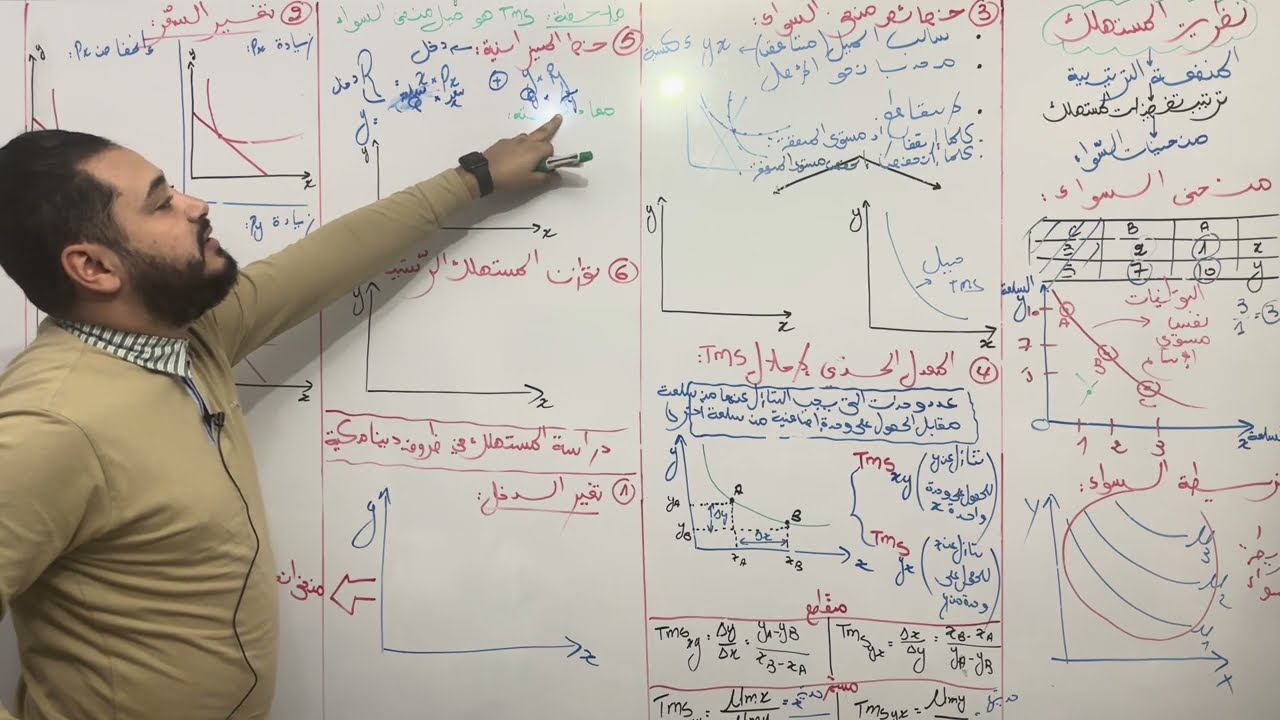 نظرية المستهلك
المنفعة الترتيبية
ترتيب تفضيلات المستهلك
منحنيات السواء
منحنى السواء:
C B A
3 2 1 x
5 7 10 y
السلعة y
10
7
5
A
B
C
1 2 3
السلعة x
التوليفات
نفس
مستوى
الإشباع
3/1 = 3
خريطة السواء:
y
x
μ3
μ2
μ1
③ خصائص منحنى السواء:
سالب الميل
محدب نحو الأصل
لا يتقاطع
كلما إرتفع إزداد مستوى المنفعة
كلما إنخفض إنخفض مستوى المنفعة
y
x
y
x
ميل
TMS
④ المعدل الحدي للإحلال TMS:
عدد وحدات التي يجب التنازل عنها من سلعة
مقابل الحصول على وحدة إضافية من سلعة أخرى
y
yA
yB
Δy
Δx
A
B
xA
xB
x
TMS xy
تنازل عن y
للحصول على وحدة
واحدة x
TMS yx
تنازل عن x
للحصول على
وحدة من y
متقطع
TMS xy = Δy/Δx = yA-yB / xB-xA
TMS yx = Δx/Δy = xB-xA / yA-yB
مستمر
TMS = μmx / μmy =
TMS yx = μmy =
ملاحظة: TMS هو ميل منحنى السواء
⑤ خط الميزانية:
دخل
دخل R = x × Px + y × Py
y =
y
x
⑥ توازن المستهلك
y
x
دراسة المستهلك في ظروف ديناميكية
① تغير الدخل:
y
x
منحنيات
② تغير السعر:
زيادة Px:
إنخفاض Px:
y
x
y
زيادة Py:
x